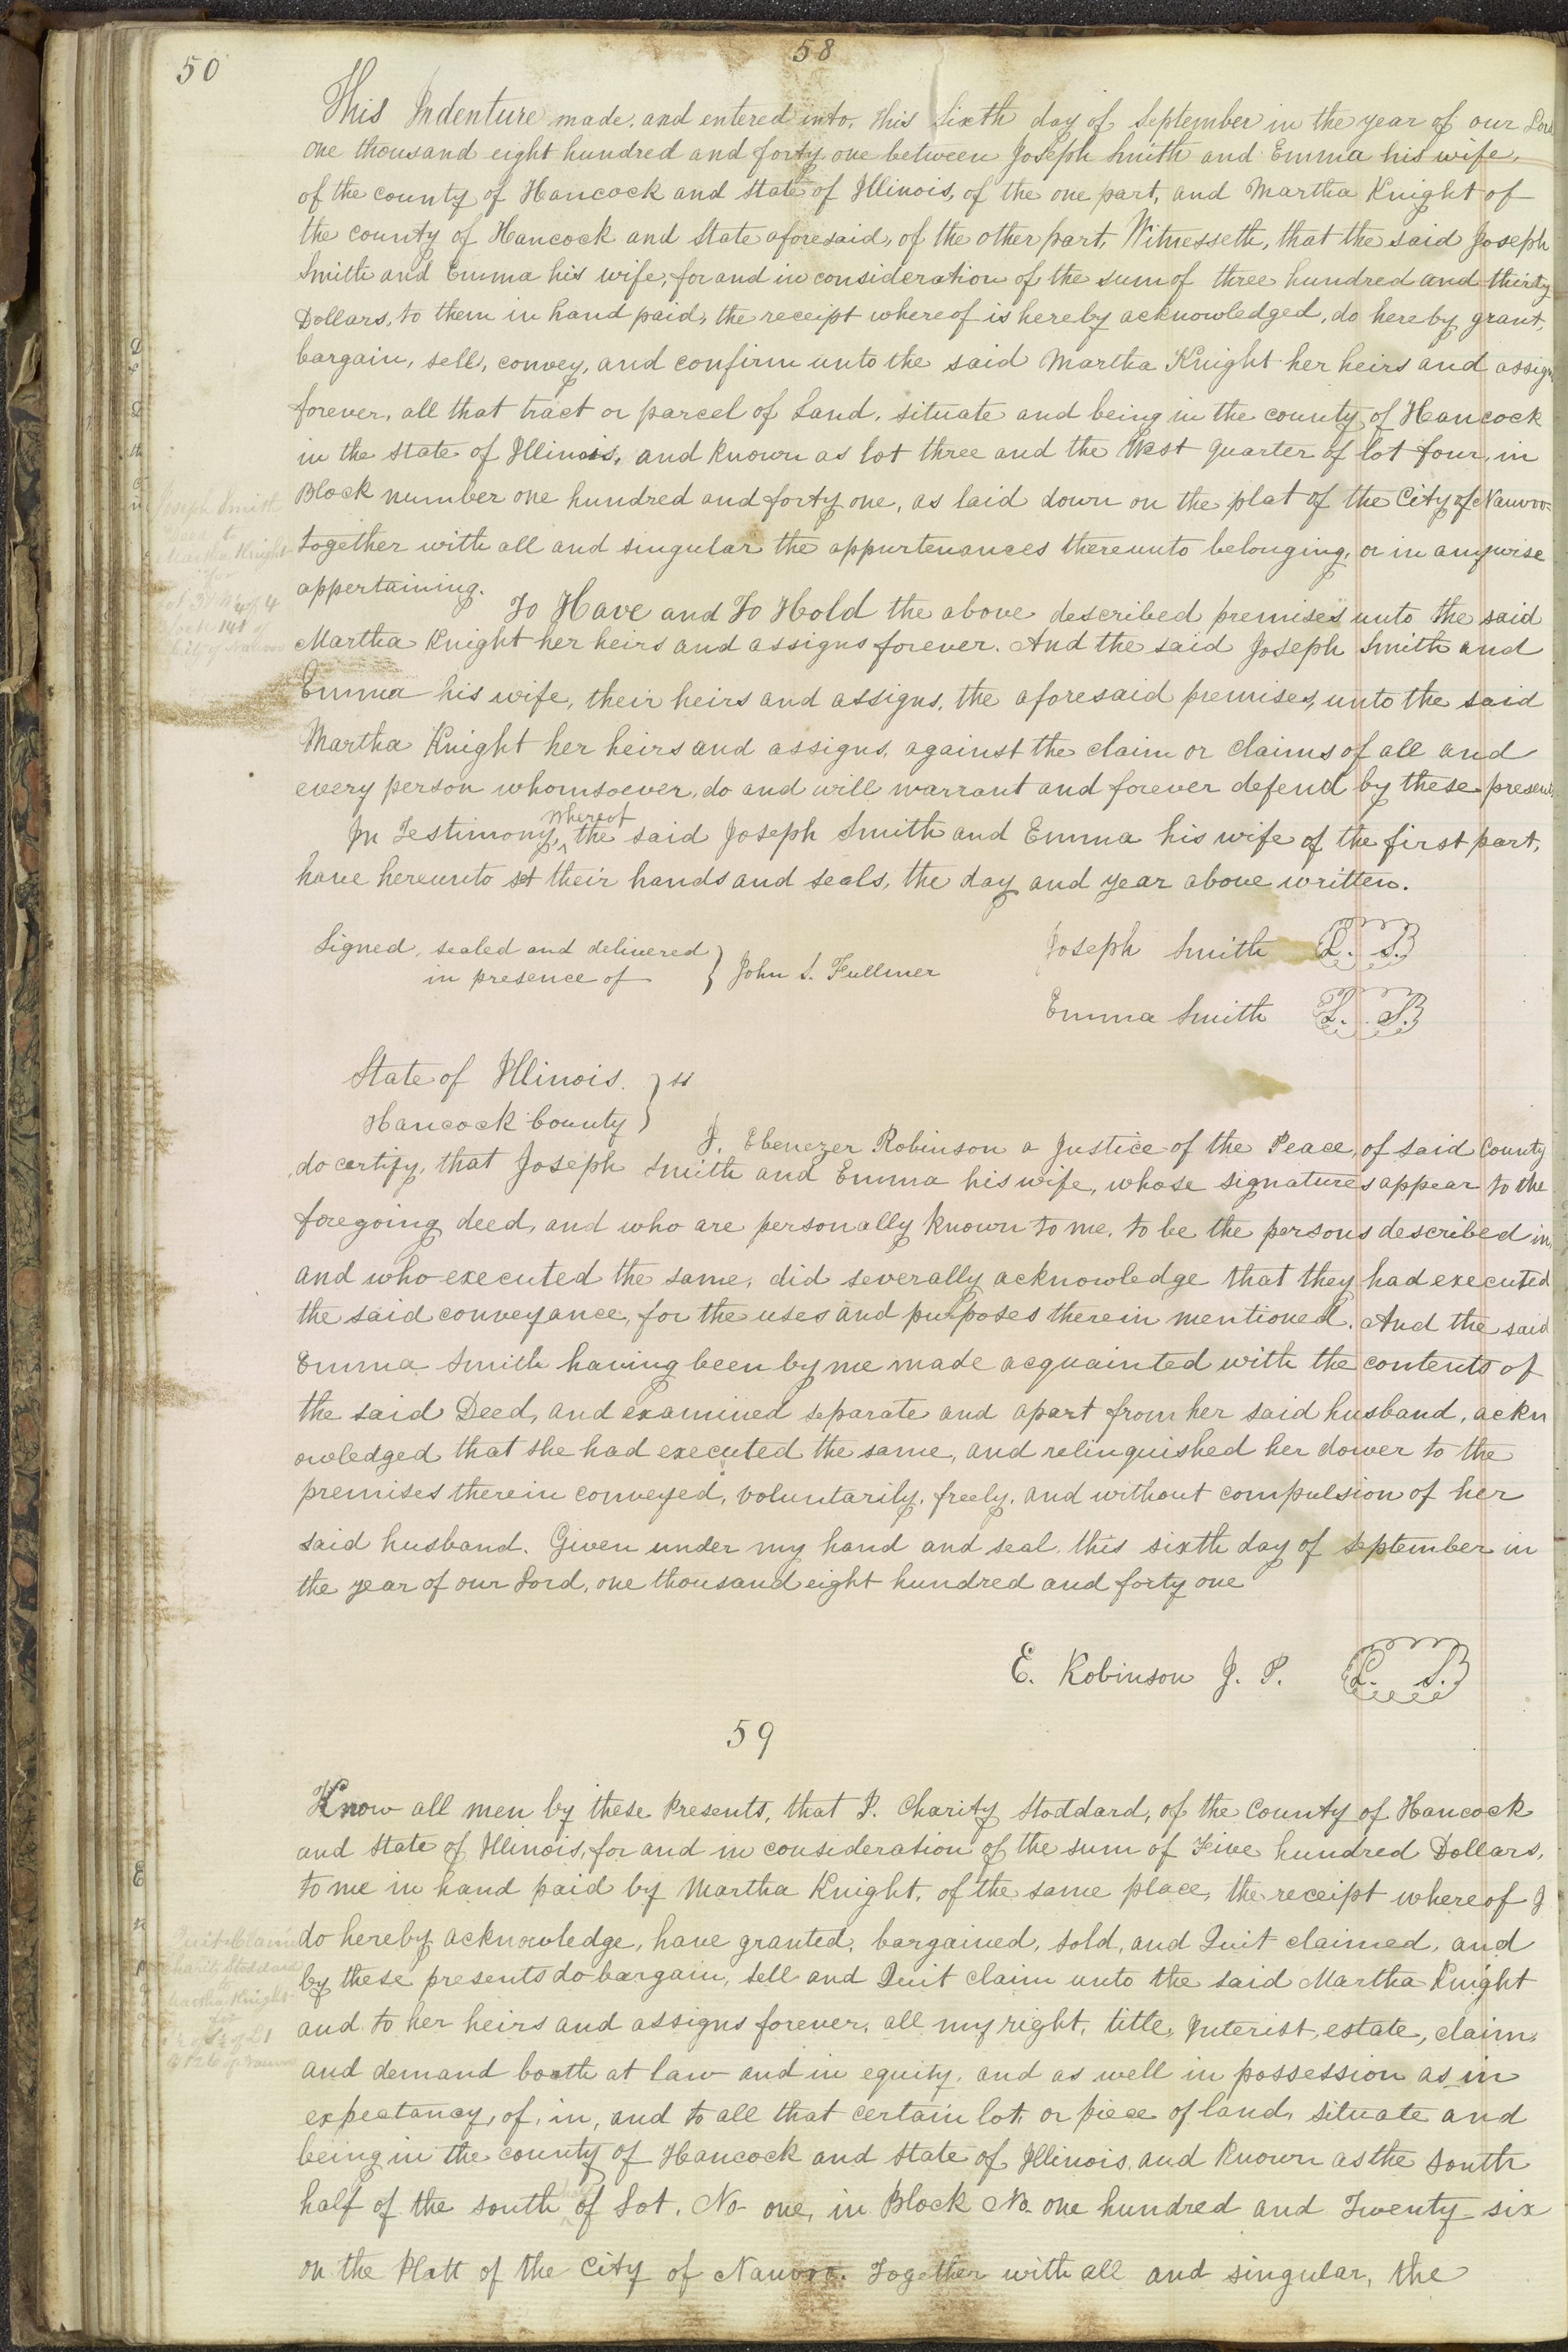 50
58
This Indenture made, and entered into, this Sixth day of September in the year of our Lord
one thousand eight hundred and forty one between Joseph Smith and Emma his wife,
of the county of Hancock and State of Illinois, of the one part, and Martha Knight of
the county of Hancock and State aforesaid, of the other part, Witnesseth, that the said Joseph
Smith and Emma his wife, for and in consideration of the sum of three hundred and thirty
Dollars, to them in hand paid, the receipt whereof is hereby acknowledged, do hereby grant,
bargain, sell, convey, and confirm unto the said Martha Knight her heirs and assign
forever, all that tract or parcel of Land, situate and being in the county of Hancock
in the State of Illinois, and known as lot three and the West quarter of lot four, in
Block number one hundred and forty one, as laid down on the plat of the City of Nauvoo.
together with all and singular the appurtenances thereunto belonging, or in anywise
appertaining. To Have and To Hold the above described premises unto the said
Martha Knight her heirs and assigns forever. And the said Joseph Smith and
Emma his wife, their heirs and assigns, the aforesaid premises, unto the said
Martha Knight her heirs and assigns, against the claim or claims of all and
every person whomsoever, do and will warrant and forever defend by these presents
In Testimony, whereof the said Joseph Smith and Emma his wife of the first part,
have hereunto set their hands and seals, the day and year above written.
Signed, sealed and delivered
in presence of } John S. Fullmer
Joseph Smith L. S.
Emma Smith L. S.
State of Illinois. } ss
Hancock County
I, Ebenezer Robinson a Justice of the Peace, of said County
do certify, that Joseph Smith and Emma his wife, whose signatures appear to the
foregoing deed, and who are personally known to me, to be the persons described in,
and who executed the same, did severally acknowledge that they had executed
the said conveyance, for the uses and purposes therein mentioned. And the said
Emma Smith having been by me made acquainted with the contents of
the said Deed, and examined separate and apart from her said husband, ackn
owledged that she had executed the same, and relinquished her dower to the
premises therein conveyed, voluntarily, freely, and without compulsion of her
said husband. Given under my hand and seal, this sixth day of september in
the year of our Lord, one thousand eight hundred and forty one
E. Robinson J. P. L. S.
Joseph Smith
to
Martha Knight
for
Lot 3 & W 1/4 of 4
Block 141 of
City of Nauvoo
59
Know all men by these Presents, that I. Charity Stoddard, of the County of Hancock
and State of Illinois, for and in consideration of the sum of Five hundred Dollars,
to me in hand paid by Martha Knight, of the same place, the receipt whereof I
do hereby acknowledge, have granted, bargained, sold, and Quit claimed, and
by these presents do bargain, sell and Quit claim unto the said Martha Knight
and to her heirs and assigns forever, all my right, title, Interist, estate, claim,
and demand booth at law and in equity, and as well in possession as in
expectancy, of, in, and to all that certain lot, or piece of land, situate and
being in the county of Hancock and State of Illinois, and known as the South
half of the south of Lot. No one, in Block No. one hundred and Twenty six
on the Platt of the City of Nauvoo. Together with all and singular, the
Quit Claim
Charity Stoddard
to
Martha Knight
for